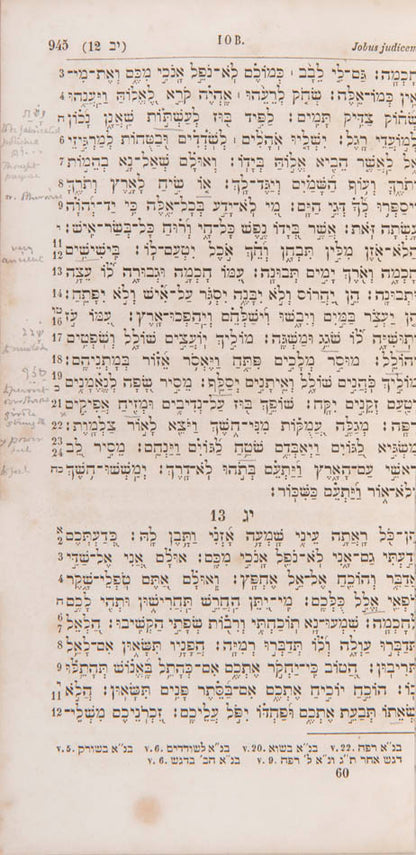 945 (12 יב) IOB. Jobus judicem
חָכְמָה׃ גַּם־לִי לֵבָב ׀ כְּמוֹכֶם לֹא־נֹפֵל אָנֹכִי מִכֶּם וְאֶת־מִי־ 3
אֵין כְּמוֹ־אֵלֶּה׃ שְׂחֹק לְרֵעֵהוּ ׀ אֶהְיֶה קֹרֵא לֶאֱלוֹהַּ וַיַּעֲנֵהוּ 4
שְׂחוֹק צַדִּיק תָּמִים׃ לַפִּיד בּוּז לְעַשְׁתּוּת שַׁאֲנָן נָכוֹן ה
לְמוֹעֲדֵי רָגֶל׃ יִשְׁלָיוּ אֹהָלִים ׀ לְשֹׁדְדִים וּבַטֻּחוֹת לְמַרְגִּיזֵי 6
אֵל לַאֲשֶׁר הֵבִיא אֱלוֹהַּ בְּיָדוֹ׃ וְאוּלָם שְׁאַל־נָא בְהֵמוֹת 7
וְתֹרֶךָּ וְעוֹף הַשָּׁמַיִם וְיַגֶּד־לָךְ׃ אוֹ שִׂיחַ לָאָרֶץ וְתֹרֶךָּ 8
וִיסַפְּרוּ לְךָ דְּגֵי הַיָּם׃ מִי לֹא־יָדַע בְּכָל־אֵלֶּה כִּי יַד־יְהוָה 9
עָשְׂתָה זֹּאת׃ אֲשֶׁר בְּיָדוֹ נֶפֶשׁ כָּל־חָי וְרוּחַ כָּל־בְּשַׂר־אִישׁ׃ י
הֲלֹא־אֹזֶן מִלִּין תִּבְחָן וְחֵךְ אֹכֶל יִטְעַם־לוֹ׃ בִּישִׁישִׁים 11 12
חָכְמָה וְאֹרֶךְ יָמִים תְּבוּנָה׃ עִמּוֹ חָכְמָה וּגְבוּרָה לוֹ עֵצָה 13
וּתְבוּנָה׃ הֵן יַהֲרוֹס וְלֹא יִבָּנֶה יִסְגֹּר עַל־אִישׁ וְלֹא יִפָּתֵחַ׃ 14
הֵן יַעְצֹר בַּמַּיִם וְיִבָשׁוּ וִישַׁלְּחֵם וְיַהַפְכוּ־אָרֶץ׃ עִמּוֹ עֹז טו 16
וְתוּשִׁיָּה לוֹ שֹׁגֵג וּמַשְׁגֶּה׃ מוֹלִיךְ יוֹעֲצִים שׁוֹלָל וְשֹׁפְטִים 17
יְהוֹלֵל׃ מוּסַר מְלָכִים פִּתֵּחַ וַיֶּאְסֹר אֵזוֹר בְּמָתְנֵיהֶם׃ 18
מוֹלִיךְ כֹּהֲנִים שׁוֹלָל וְאֵיתָנִים יְסַלֵּף׃ מֵסִיר שָׂפָה לְנֶאֱמָנִים 19 כ
וְטַעַם זְקֵנִים יִקָּח׃ שׁוֹפֵךְ בּוּז עַל־נְדִיבִים וּמְזִיחַ אֲפִיקִים 21
רִפָּה׃ מְגַלֶּה עֲמֻקוֹת מִנִּי־חֹשֶׁךְ וַיֹּצֵא לָאוֹר צַלְמָוֶת׃ 22
מַשְׂגִּיא לַגּוֹיִם וַיְאַבְּדֵם שֹׁטֵחַ לַגּוֹיִם וַיַּנְחֵם׃ מֵסִיר לֵב 23 24
רָאשֵׁי עַם־הָאָרֶץ וַיַּתְעֵם בְּתֹהוּ לֹא־דָרֶךְ׃ יְמַשְׁשׁוּ־חֹשֶׁךְ כה
וְלֹא־אוֹר וַיַּתְעֵם כַּשִּׁכּוֹר׃
יג 13
הֶן־כֹּל רָאֲתָה עֵינִי שָׁמְעָה אָזְנִי וַתָּבֶן לָהּ׃ כְּדַעְתְּכֶם א 2
יָדַעְתִּי גַם־אָנִי לֹא־נֹפֵל אָנֹכִי מִכֶּם׃ אוּלָם אֲנִי אֶל־שַׁדַּי 3
אֲדַבֵּר וְהוֹכֵחַ אֶל־אֵל אֶחְפָּץ׃ וְאוּלָם אַתֶּם טֹפְלֵי־שָׁקֶר 4
רֹפְאֵי אֱלִל כֻּלְּכֶם׃ מִי־יִתֵּן הַחֲרֵשׁ תַּחֲרִישׁוּן וּתְהִי לָכֶם ה
לְחָכְמָה׃ שִׁמְעוּ־נָא תוֹכַחְתִּי וְרִבוֹת שְׂפָתַי הַקְשִׁיבוּ׃ הַלְאֵל 6 7
תְּדַבְּרוּ עַוְלָה וְלוֹ תְּדַבְּרוּ רְמִיָּה׃ הֲפָנָיו תִּשָּׂאוּן אִם־לָאֵל 8
תְּרִיבוּן׃ הֲטוֹב כִּי־יַחְקֹר אֶתְכֶם אִם־כְּהָתֵל בֶּאֱנוֹשׁ תְּהָתֵלּוּ 9
בוֹ׃ הוֹכֵחַ יוֹכִיחַ אֶתְכֶם אִם־בַּסֵּתֶר פָּנִים תִּשָּׂאוּן׃ הֲלֹא י 11
שְׂאֵתוֹ תְּבַעֵת אֶתְכֶם וּפַחְדּוֹ יִפֹּל עֲלֵיכֶם׃ זִכְרֹנֵיכֶם מִשְׁלֵי־ 12
v. 5. בנ״א בשורק v. 6. בנ״א לשודדים v. 20. בנ״א בשוא v. 22. בנ״א רפה
v. 6. בנ״א הב׳ בדגש v. 9. דגש אחר ת״ג ונ״א ל׳ רפה
60